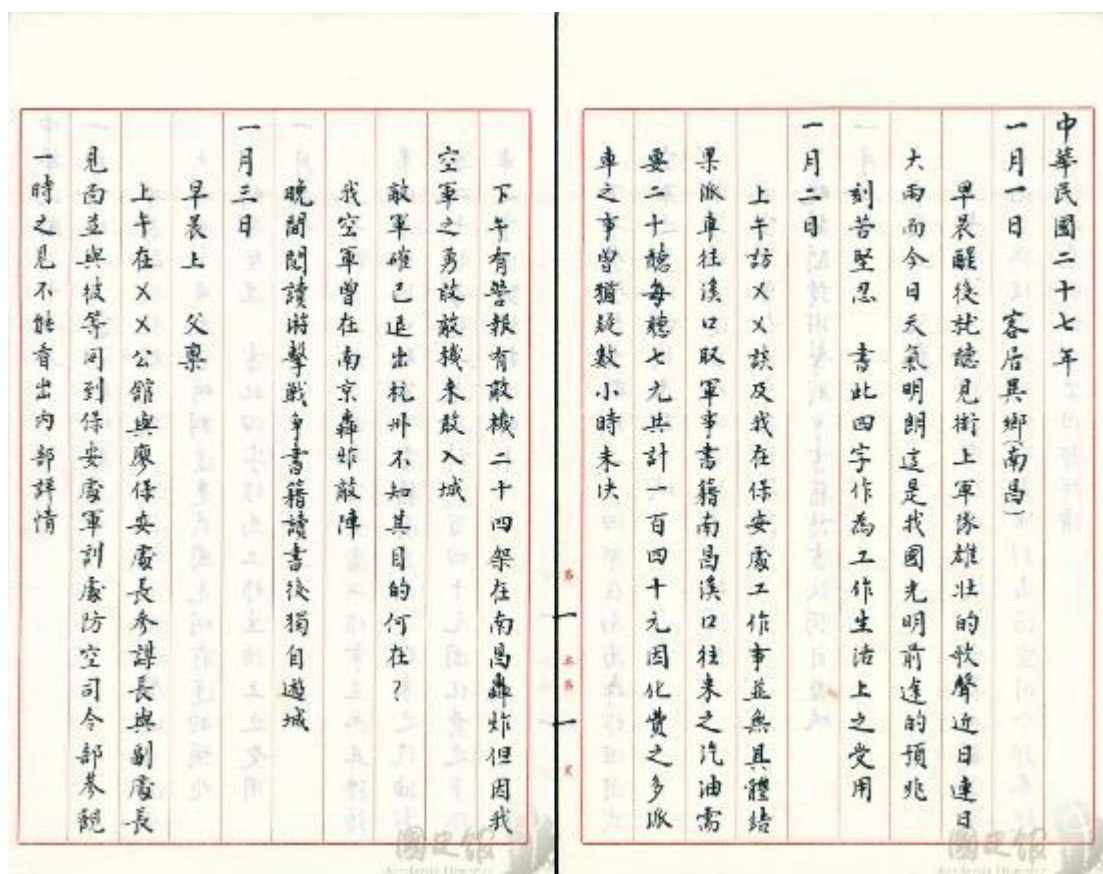 中華民國二十七年
一月一日　客居異鄉(南昌)
早晨醒後就聽見街上軍隊雄壯的歌聲近日連日
大雨而今日天氣明朗這是我國光明前途的預兆
刻苦堅忍　書此四字作為工作生活上之受用
一月二日
上午訪ㄨㄨ談及我在保安處工作事並無具體結
果派車往溪口取軍事書籍南昌溪口往來之汽油需
要二十聽每聽七元共計一百四十元因化費之多派
車之事曾猶疑數小時未決
下午有警報有敵機二十四架在南昌轟炸但因我
空軍之勇敢敵機未敢入城
敵軍確已退出杭州不知其目的何在？
我空軍曾在南京轟炸敵陣
晚間閱讀游擊戰爭書籍讀書後獨自遊城
一月三日
早晨上　父稟
上午在ㄨㄨ公館與廖保安處長參謀長與副處長
見面並與彼等同到保安處軍訓處防空司令部參觀
一時之見不能看出內部詳情
國史館
Academia Historica
國史館
Academia Historica